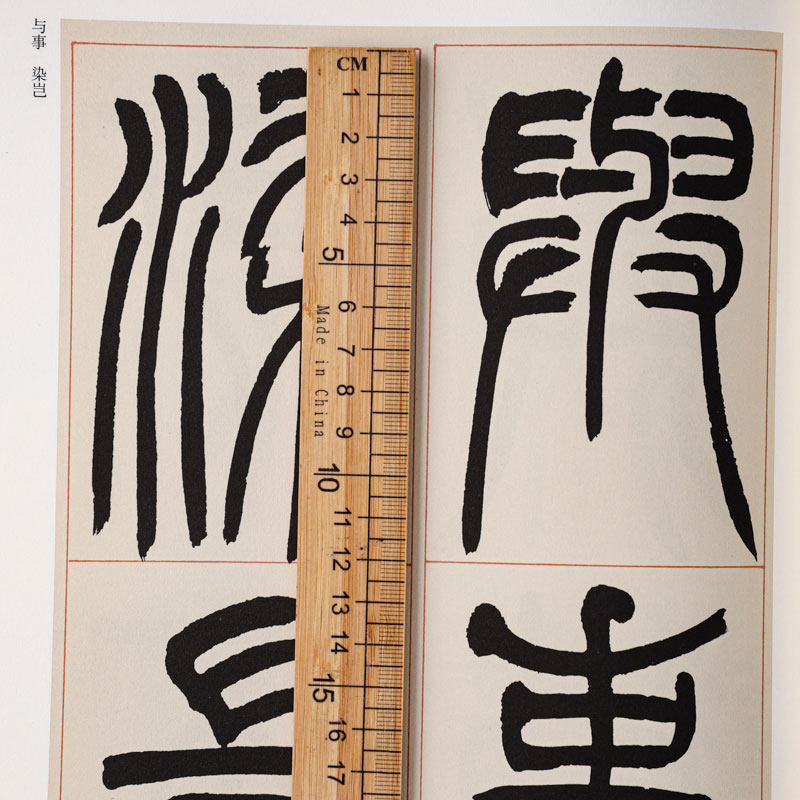 与事 染岂
與
事
染
CM
1
2
3
4
5
6
7
8
9
10
11
12
13
14
15
16
17
Made in China